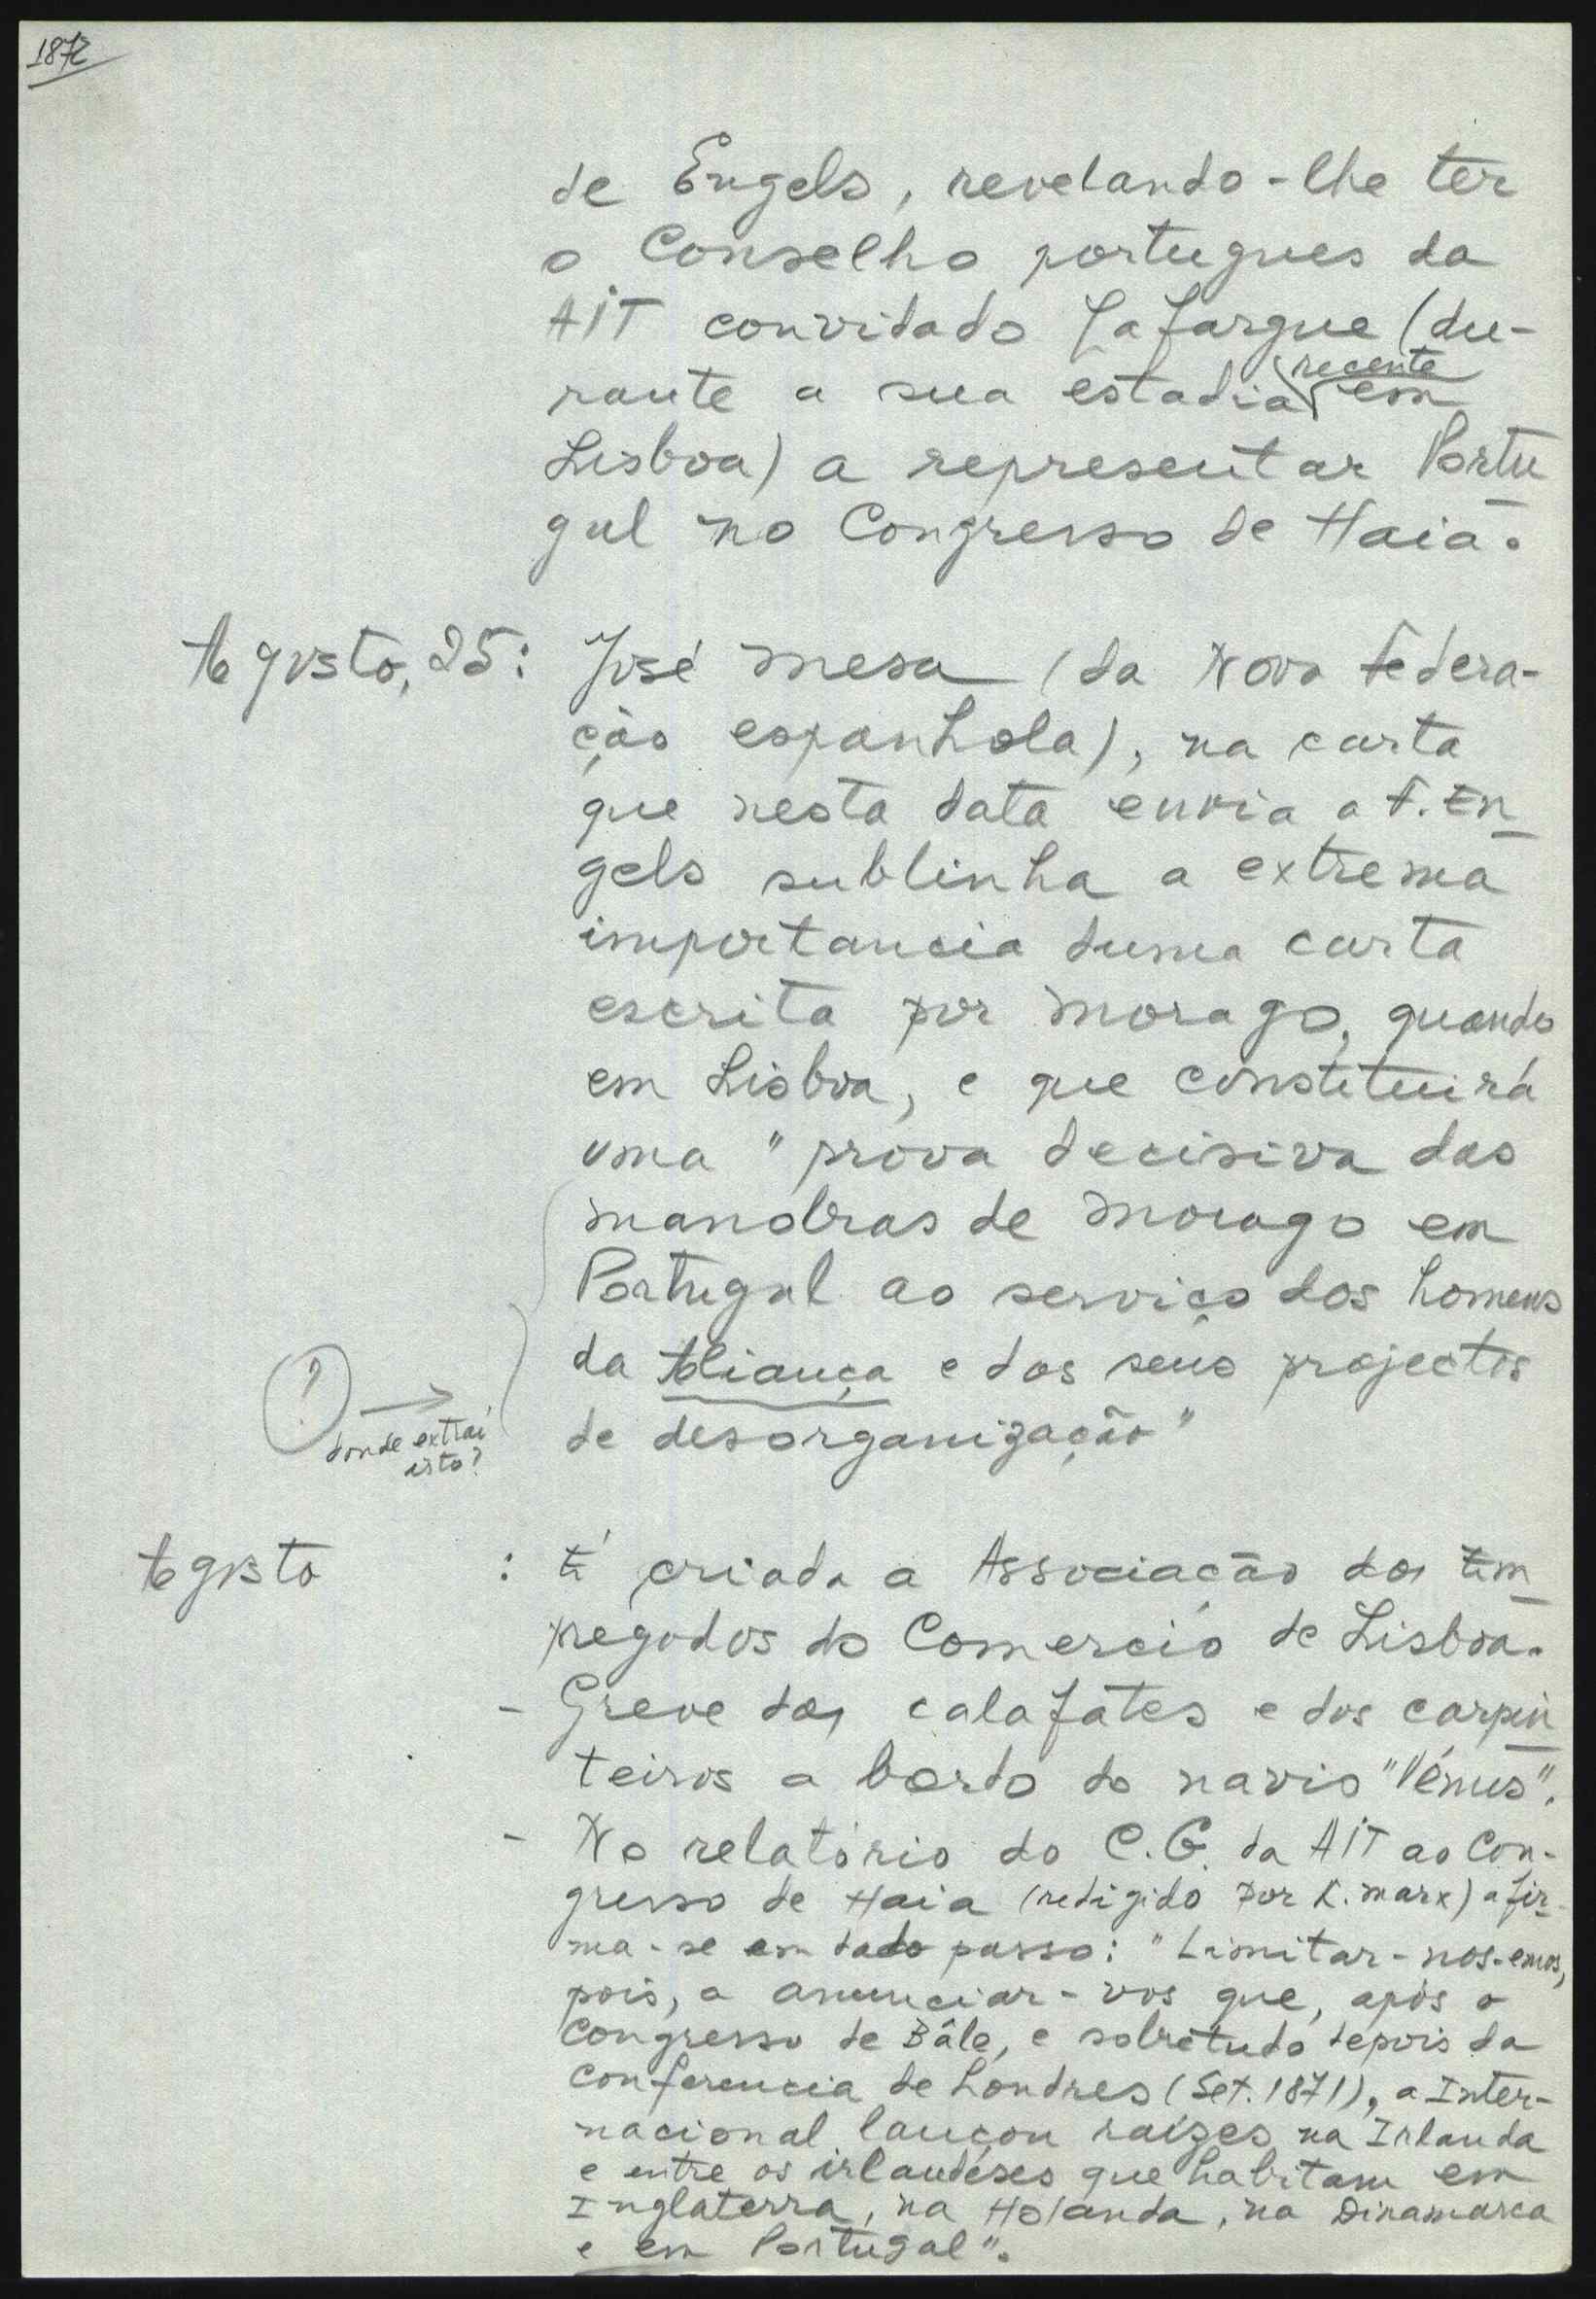 1872
de Engels, revelando-lhe ter
o Conselho portugues da
AIT convidado Lafargue (du-
rante a sua estadia recente em
Lisboa) a representar Portu
gal no Congresso de Haia.
Agosto, 25: José Mesa (da Nova Federa-
ção espanhola), na carta
que nesta data envia a F. En
gels sublinha a extrema
importancia duma carta
escrita por Morago, quando
em Lisboa, e que constituirá
uma "prova decisiva das
manobras de Morago em
Portugal ao serviço dos homens
da Aliança e dos seus projectos
de desorganização"
? → donde extraí
isto?
Agosto : É criada a Associação dos Em
pregados do Comercio de Lisboa.
- Greve dos calafates e dos carpin
teiros a bordo do navio "Vénus".
- No relatório do C.G. da AIT ao Con-
gresso de Haia (redigido por K. Marx) afir-
ma-se em dado passo: "Limitar-nos-emos,
pois, a anunciar-vos que, após o
Congresso de Bâle, e sobretudo depois da
Conferencia de Londres (Set. 1871), a Inter-
nacional lançou raízes na Irlanda
e entre os irlandéses que habitam em
Inglaterra, na Holanda, na Dinamarca
e em Portugal".